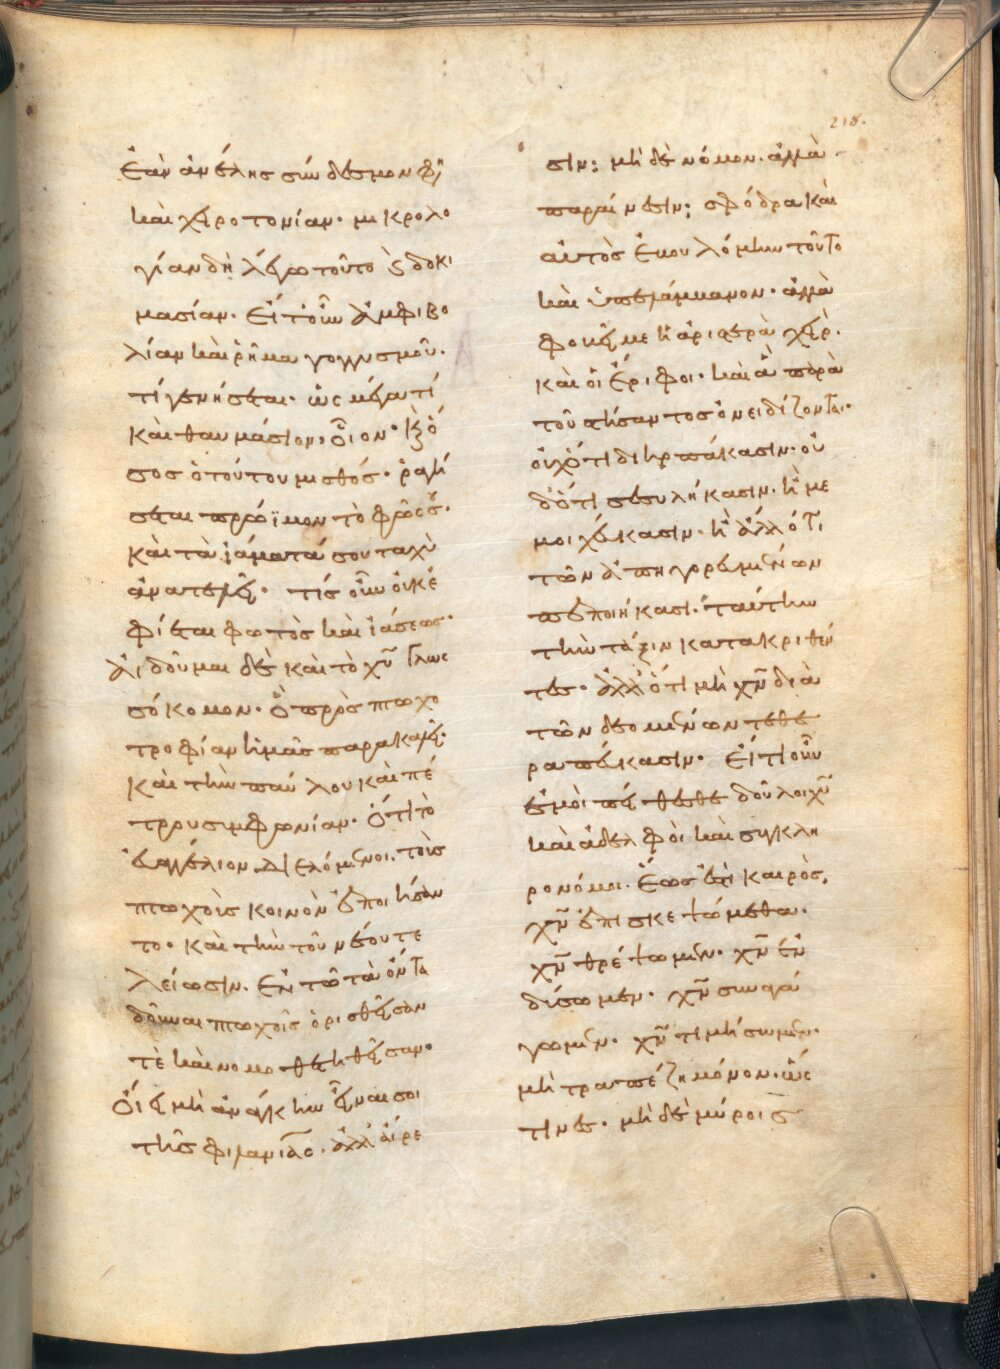 218.
Ἐὰν ἀνέλης σύνδεσμον φη
καὶ χειροτονίαν· μικρολο
γίαν δὴ λέγω τοῦτο ἢ δοκι
μασίαν. Εἴτ' οὖν ἀμφιβο
λίαν καὶ ῥῆμα γογγυσμοῦ.
τί γενήσεται. ὡς μέγα τί
καὶ θαυμάσιον. οἷον· καὶ ὅ
σος ὁ τούτου μισθός· ῥαγή
σεται πρώϊμον τὸ φῶς σου.
καὶ τὰ ἰάματά σου ταχὺ
ἀνατελεῖ. τίς οὖν οὐκ ἐ
φίεται φωτὸς καὶ ἰάσεως.
Αἰδοῦμαι δὲ καὶ τὸ χῦ γλωσ
σόκομον. ὃ πρὸς πτωχο
τροφίαν ἡμᾶς παρακαλεῖ.
καὶ τὴν παύλου καὶ πέ
τρου συμφωνίαν. ὅτι τὸ
εὐαγγέλιον διελόμενοι. τοῖς
πτωχοῖς κοινὸν ἐποιήσαν
το. καὶ τὴν τοῦ νέου τε
λείωσιν. Ἐν τῶ τὰ ὄντα
δοῦναι πτωχοῖς ὁρισθεῖσάν
τὲ καὶ νομοθετηθεῖσαν.
Οἴει μὴ ἀνάγκην εἶναι σοι
τῆς φιλανίας. ἀλλ' αἵρε
σιν; μὴ δὲ νόμον. ἀλλὰ
παραίνεσιν; σφόδρα καὶ
αὐτὸς ἐβουλόμην τοῦτο
καὶ ὑπελάμβανον. ἀλλὰ
φοβεῖ με ἡ ἀριστερὰ χείρ.
καὶ οἱ ἔριφοι. καὶ ἃ παρὰ
τοῦ στήσαντος ὀνειδίζονται.
οὐχ ὅτι διηρπάκασιν. οὐ
δ' ὅτι σεσυλήκασιν. ἢ με
μοιχεύκασιν. ἢ ἄλλό τι
τῶν ἀπηγορευμένων
πεποιήκασι. ταύτην
τὴν τάξιν κατακριθέν
τες. ἀλλ' ὅτι μὴ χν διὰ
τῶν δεομένων τεθε
ραπεύκασιν. Εἴ τι οὖν
ἐμοὶ πείθεσθε δοῦλοι χυ
καὶ ἀδελφοὶ καὶ συγκλη
ρονόμοι. Ἕως ἐστὶ καιρὸς,
χν ἐπισκεψώμεθα.
χν θρέψωμεν. χν ἐν
δύσωμεν. χν συναγά
γωμεν. χν τιμήσωμεν.
μὴ τραπέζη μόνον. ὥς
τινες. μὴ δὲ μύροις